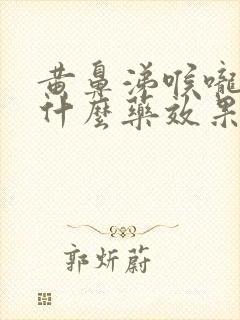 黄鼻涕喉嚨
什麼藥效果
郭炘蔚